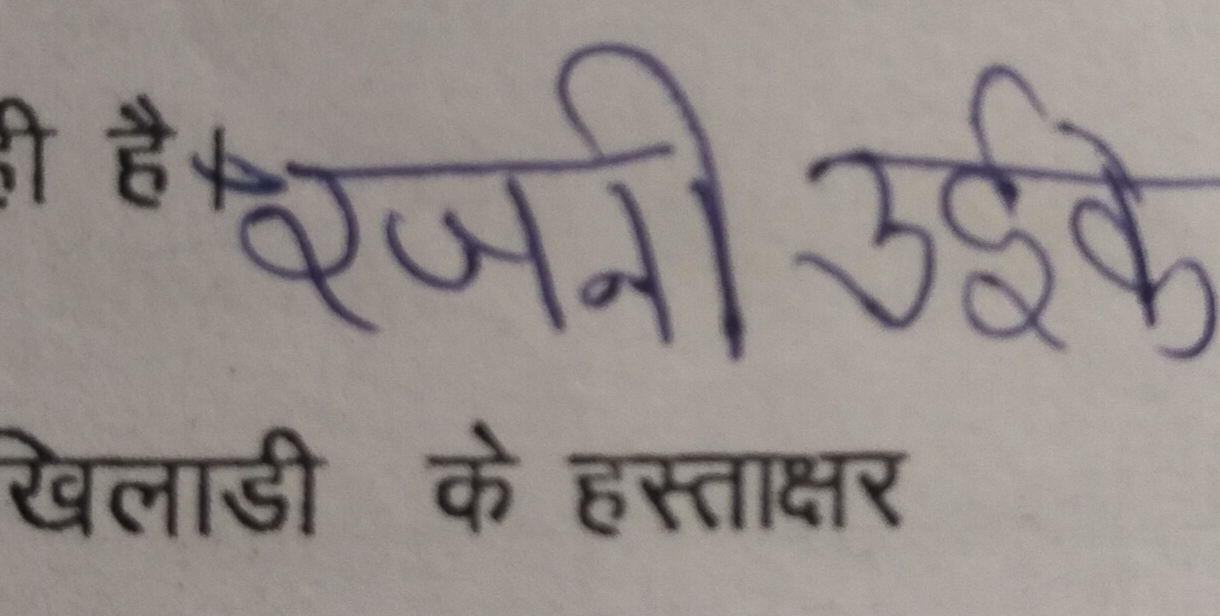 ही है रजनी उईके
खिलाडी के हस्ताक्षर